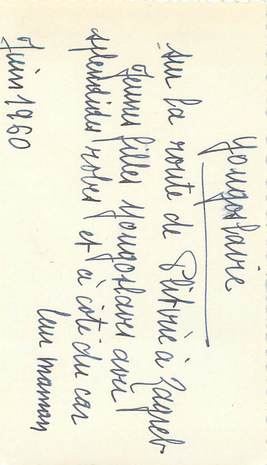 Yougoslavie
sur la route de Plitvié à Zagreb
Jeunes filles Yougoslaves avec
splendides robes et à côté du car
leur maman
Juin 1960